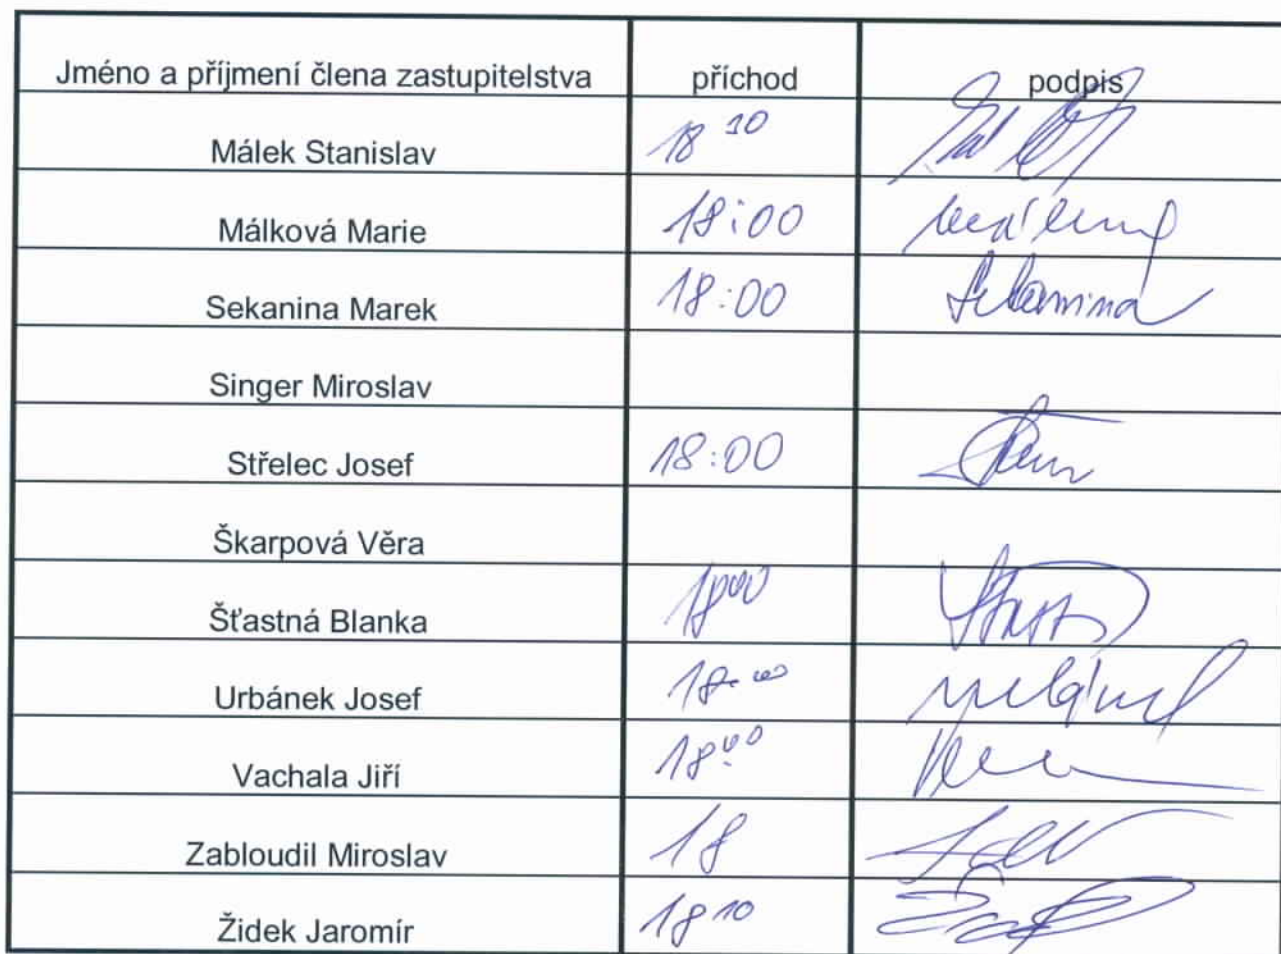 Jméno a příjmení člena zastupitelstva příchod podpis
Málek Stanislav 18 10
Málková Marie 18:00
Sekanina Marek 18:00 Sekanina
Singer Miroslav
Střelec Josef 18:00
Škarpová Věra
Šťastná Blanka 18 00
Urbánek Josef 18.00
Vachala Jiří 18.00
Zabloudil Miroslav 18
Židek Jaromír 18 10